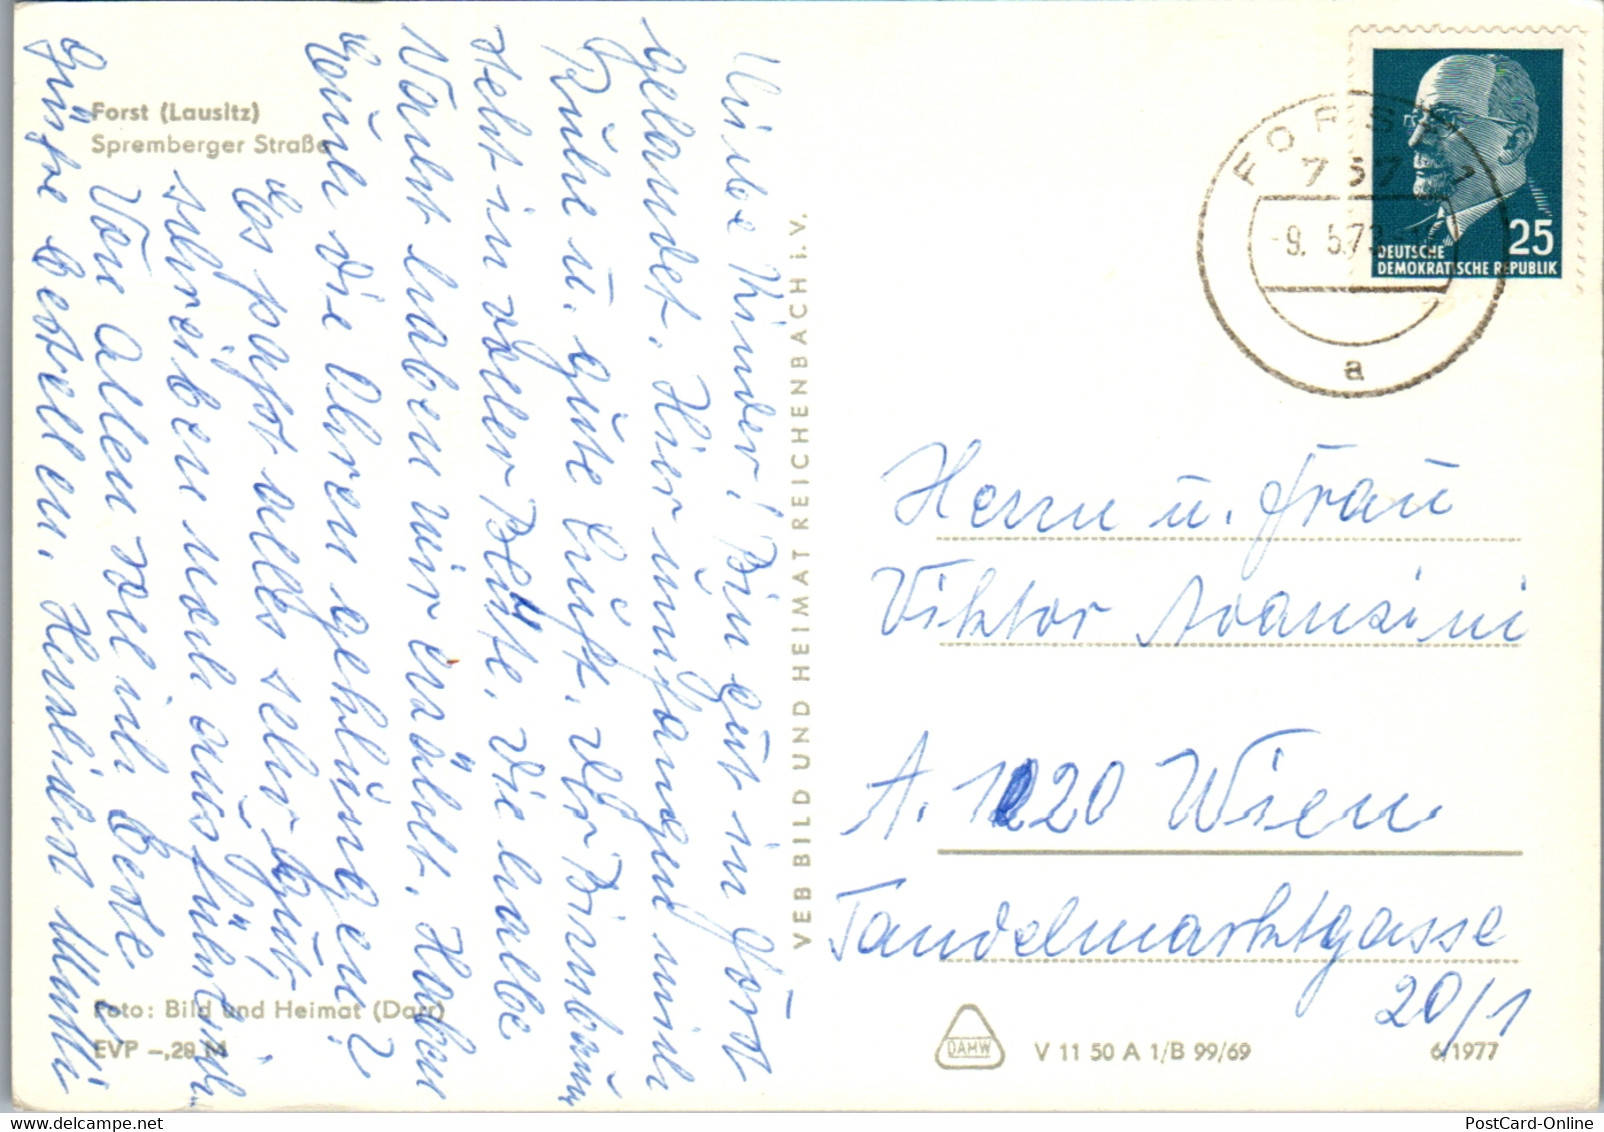 Forst (Lausitz)
Spremberger Straße
Liebe Kinder! Bin gut in Forst
gelandet. Hier umfangen mich
Ruhe u. gute Luft. Der Birnbaum
steht in voller Blüte. Die halbe
Nacht haben wir erzählt. Haben
Eure die Ohren geklungen?
Es paßt alles sehr gut,
schreiben noch ausführlich.
Von Allen soll ich beste
Grüße bestellen. Herzlichst Mutti
VEB BILD UND HEIMAT REICHENBACH i. V.
Foto: Bild und Heimat (Darr)
EVP –,20 M
FORST 1
757
-9. 5.73
a
25
DEUTSCHE
DEMOKRATISCHE REPUBLIK
Herrn u. Frau
Viktor
A. 1020 Wien
Tandelmarktgasse
20/1
DAMW
V 11 50 A 1/B 99/69
6/1977
PostCard-Online